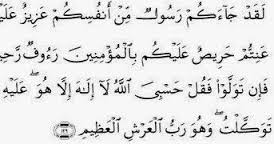 لَقَدْ جَآءَكُمْ رَسُولٌ مِّنْ أَنفُسِكُمْ عَزِيزٌ عَلَ
عَنِتُّمْ حَرِيصٌ عَلَيْكُم بِالْمُؤْمِنِينَ رَءُوفٌ رَّحِي
فَإِن تَوَلَّوْا۟ فَقُلْ حَسْبِىَ اللَّهُ لَآ إِلَٰهَ إِلَّا هُوَ ۖ عَلَيْهِ
تَوَكَّلْتُ ۖ وَهُوَ رَبُّ الْعَرْشِ الْعَظِيمِ ١٢٩